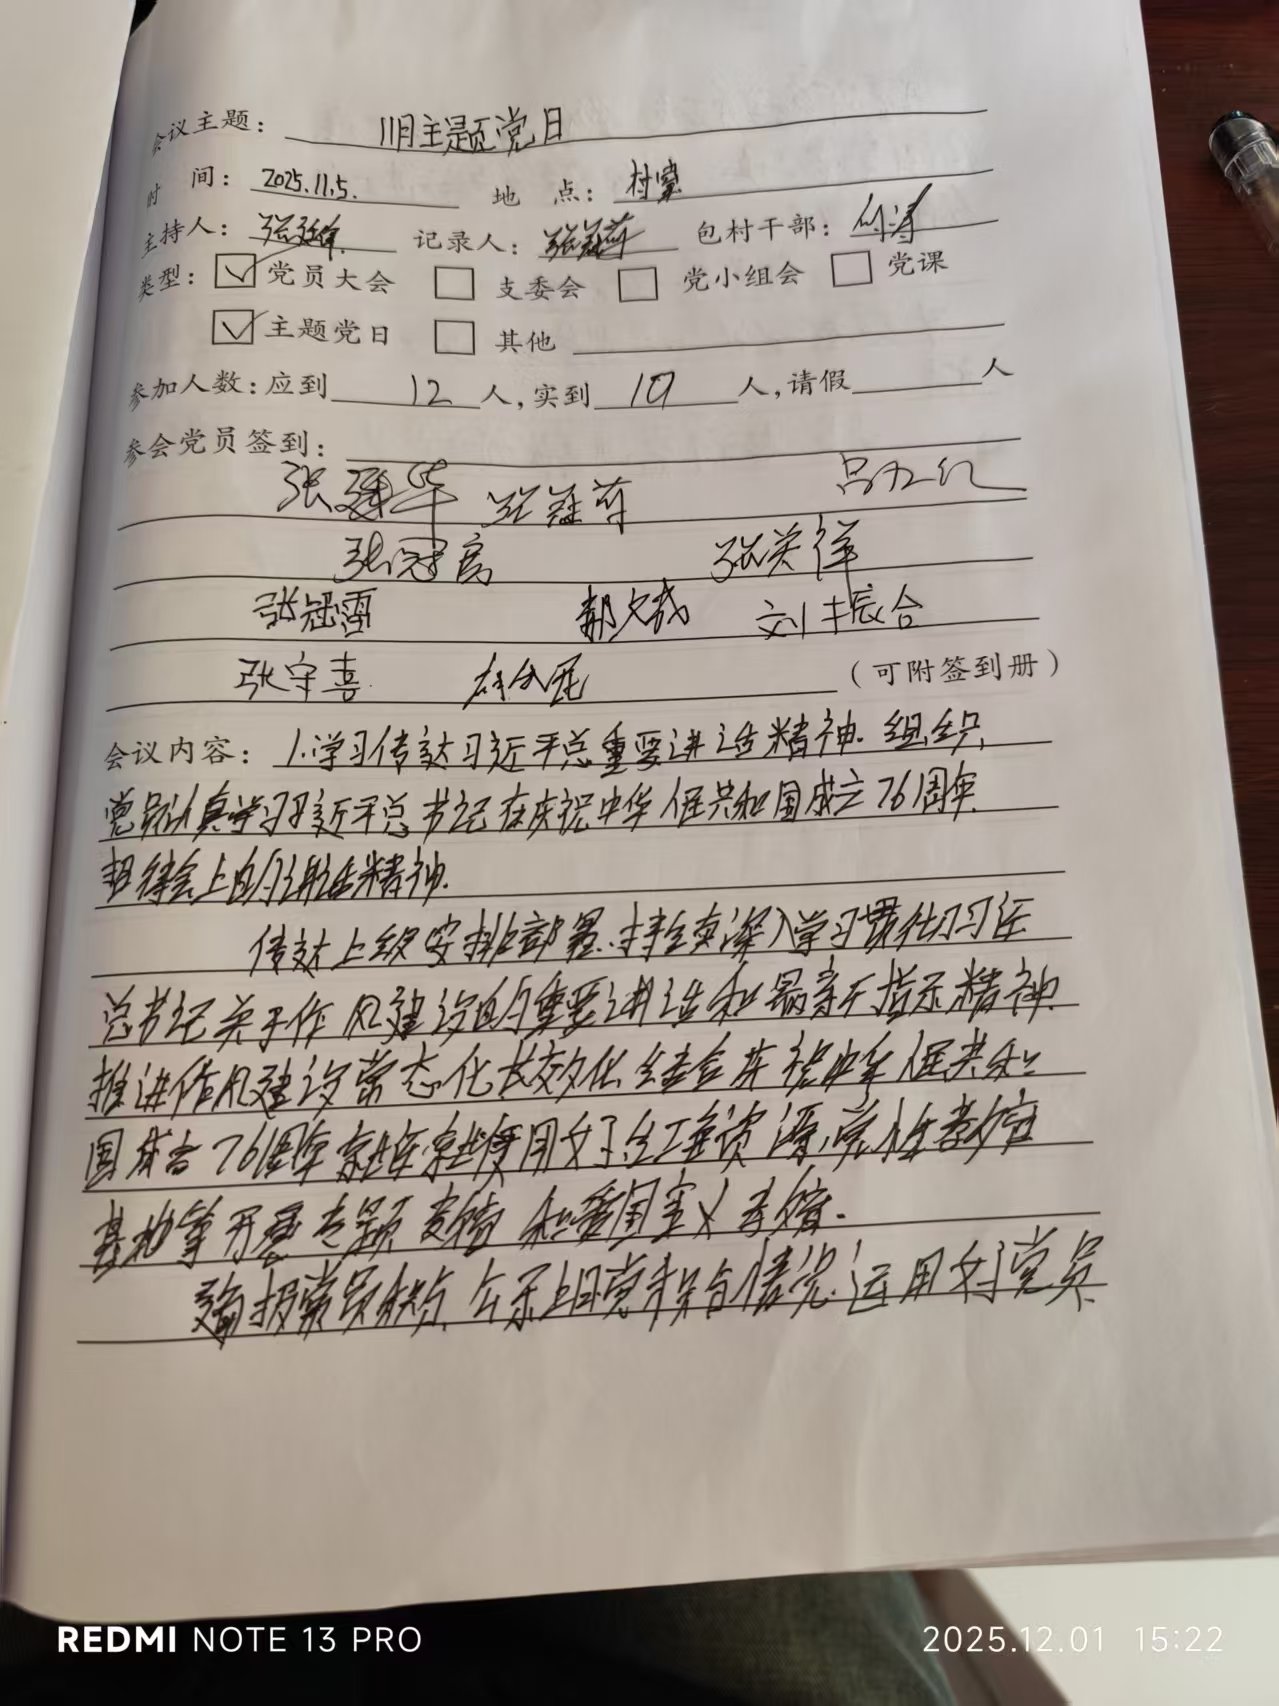 会议主题： 11月主题党日
时 间： 2025.11.5. 地 点： 村室
主持人： 记录人： 包村干部：
类型： ☑ 党员大会 □ 支委会 □ 党小组会 □ 党课
☑ 主题党日 □ 其他
参加人数：应到 12 人，实到 10 人，请假 人
参会党员签到：
张建华
张冠高
张冠雷 刘振合
张守喜 （可附签到册）
会议内容： 1.学习传达习近平总重要讲话精神. 组织
党员认真学习习近平总书记在庆祝中华人民共和国成立76周年
招待会上的讲话精神.
传达上级安排部署.持续深入学习贯彻习近
总书记关于作风建设的重要讲话和最新指示精神
推进作风建设常态化长效化 结合庆祝中华人民共和
国成立76周年 用好红色资源,党性教育
基地等开展专题 和爱国主义教育.
党员 公示上月党 情况.运用好党员